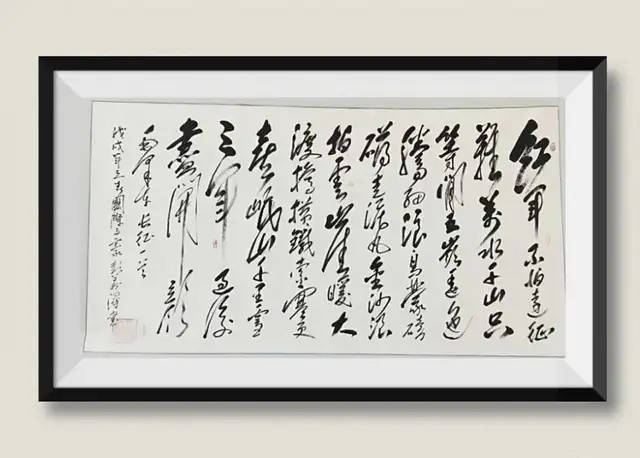 紅軍不怕遠征
難萬水千山只
等閒五嶺逶迤
騰細浪烏蒙磅
礴走泥丸金沙浪
拍雲崖暖大
渡橋橫鐵索寒更
喜岷山千里雪
三軍過後
盡開顏
毛澤東長征一首
戊戌年立春國際